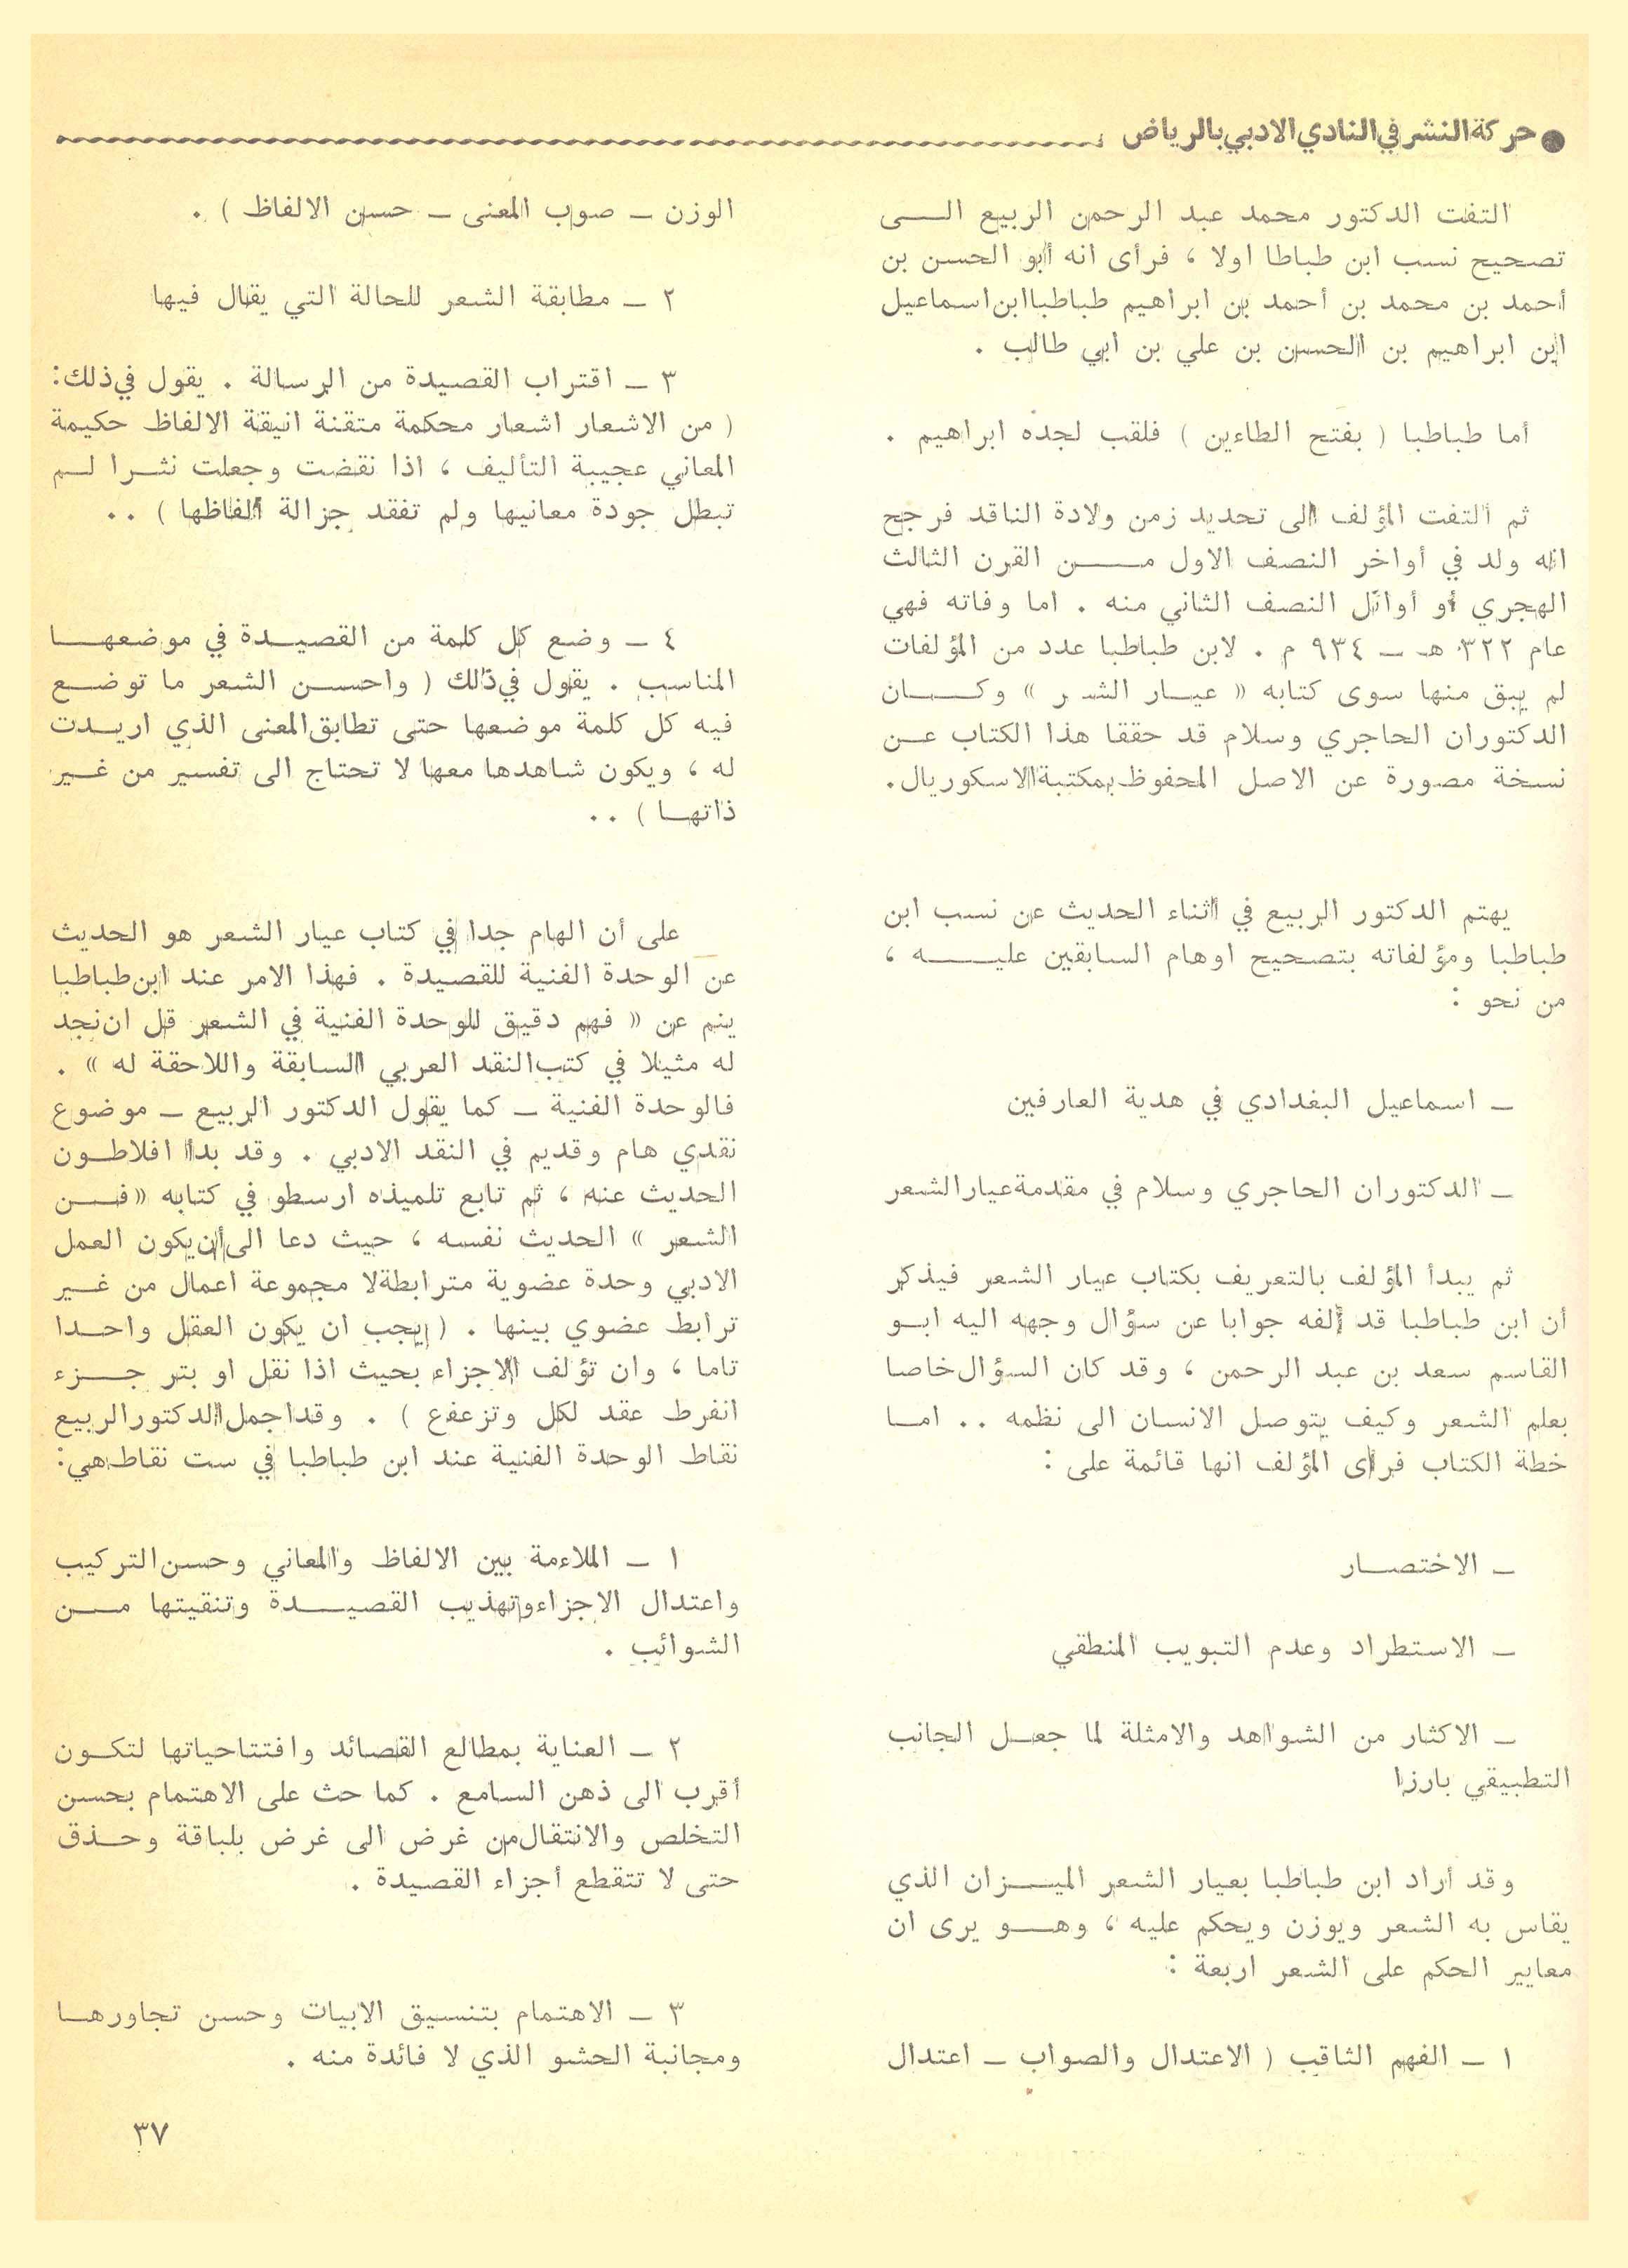 ● حركة النشر في النادي الادبي بالرياض
التفت الدكتور محمد عبد الرحمن الربيع الى
تصحيح نسب ابن طباطا اولا ، فرأى انه أبو الحسن بن
أحمد بن محمد بن أحمد بن ابراهيم طباطبا ابن اسماعيل
ابن ابراهيم بن الحسن بن علي بن ابي طالب .
أما طباطبا ( بفتح الطاءين ) فلقب لجده ابراهيم .
ثم التفت المؤلف الى تحديد زمن ولادة الناقد فرجح
انه ولد في أواخر النصف الاول من القرن الثالث
الهجري أو أوائل النصف الثاني منه . اما وفاته فهي
عام ٣٢٢ هـ ـ ٩٣٤ م . لابن طباطبا عدد من المؤلفات
لم يبق منها سوى كتابه « عيار الشعر » وكان
الدكتوران الحاجري وسلام قد حققا هذا الكتاب عن
نسخة مصورة عن الاصل المحفوظ بمكتبة الاسكوريال.
يهتم الدكتور الربيع في اثناء الحديث عن نسب ابن
طباطبا ومؤلفاته بتصحيح اوهام السابقين عليه ،
من نحو :
ـ اسماعيل البغدادي في هدية العارفين
ـ الدكتوران الحاجري وسلام في مقدمة عيار الشعر
ثم يبدأ المؤلف بالتعريف بكتاب عيار الشعر فيذكر
أن ابن طباطبا قد ألفه جوابا عن سؤال وجهه اليه ابو
القاسم سعد بن عبد الرحمن ، وقد كان السؤال خاصا
بعلم الشعر وكيف يتوصل الانسان الى نظمه .. اما
خطة الكتاب فرأى المؤلف انها قائمة على :
ـ الاختصار
ـ الاستطراد وعدم التبويب المنطقي
ـ الاكثار من الشواهد والامثلة لما جعل الجانب
التطبيقي بارزا
وقد أراد ابن طباطبا بعيار الشعر الميزان الذي
يقاس به الشعر ويوزن ويحكم عليه ، وهو يرى ان
معايير الحكم على الشعر اربعة :
١ ـ الفهم الثاقب ( الاعتدال والصواب ـ اعتدال
الوزن ـ صوب المعنى ـ حسن الالفاظ ) .
٢ ـ مطابقة الشعر للحالة التي يقال فيها
٣ ـ اقتراب القصيدة من الرسالة . يقول في ذلك:
( من الاشعار اشعار محكمة متقنة انيقة الالفاظ حكيمة
المعاني عجيبة التأليف ، اذا نقضت وجعلت نثرا لم
تبطل جودة معانيها ولم تفقد جزالة ألفاظها ) ..
٤ ـ وضع كل كلمة من القصيدة في موضعها
المناسب . يقول في ذلك ( واحسن الشعر ما توضع
فيه كل كلمة موضعها حتى تطابق المعنى الذي اريدت
له ، ويكون شاهدها معها لا تحتاج الى تفسير من غير
ذاتها ) ..
على أن الهام جدا في كتاب عيار الشعر هو الحديث
عن الوحدة الفنية للقصيدة . فهذا الامر عند ابن طباطبا
ينم عن « فهم دقيق للوحدة الفنية في الشعر قل ان نجد
له مثيلا في كتب النقد العربي السابقة واللاحقة له » .
فالوحدة الفنية ـ كما يقول الدكتور الربيع ـ موضوع
نقدي هام وقديم في النقد الادبي . وقد بدأ افلاطون
الحديث عنه ، ثم تابع تلميذه ارسطو في كتابه « فن
الشعر » الحديث نفسه ، حيث دعا الى أن يكون العمل
الادبي وحدة عضوية مترابطة لا مجموعة اعمال من غير
ترابط عضوي بينها . ( يجب ان يكون العقل واحدا
تاما ، وان تؤلف الاجزاء بحيث اذا نقل او بتر جزء
انفرط عقد لكل وتزعفع ) . وقد اجمل الدكتور الربيع
نقاط الوحدة الفنية عند ابن طباطبا في ست نقاط هي:
١ ـ الملاءمة بين الالفاظ والمعاني وحسن التركيب
واعتدال الاجزاء وتهذيب القصيدة وتنقيتها من
الشوائب .
٢ ـ العناية بمطالع القصائد وافتتاحياتها لتكون
أقرب الى ذهن السامع . كما حث على الاهتمام بحسن
التخلص والانتقال من غرض الى غرض بلباقة وحذق
حتى لا تتقطع أجزاء القصيدة .
٣ ـ الاهتمام بتنسيق الابيات وحسن تجاورها
ومجانبة الحشو الذي لا فائدة منه .
٣٧